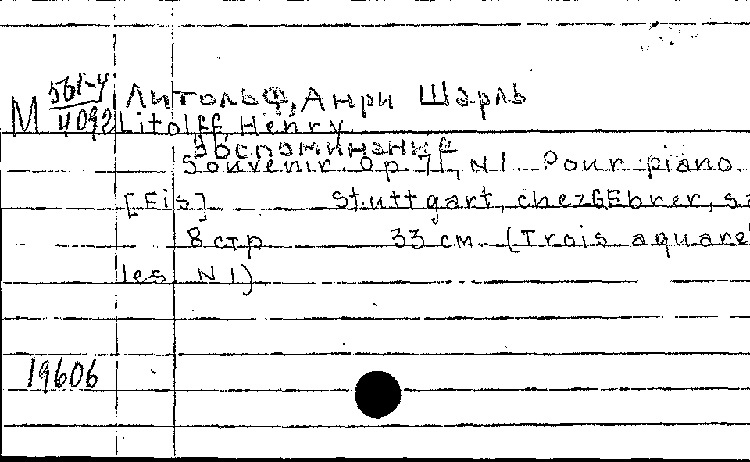 М 561-4/4092 Литольф, Анри Шарль
Litolff, Henry
Воспоминание
Souvenir. Op. 71, N 1. Pour piano.
[Fis] Stuttgart, chez GEbner, sa
8 стр 33 см. (Trois aquarel
les N 1)
19606